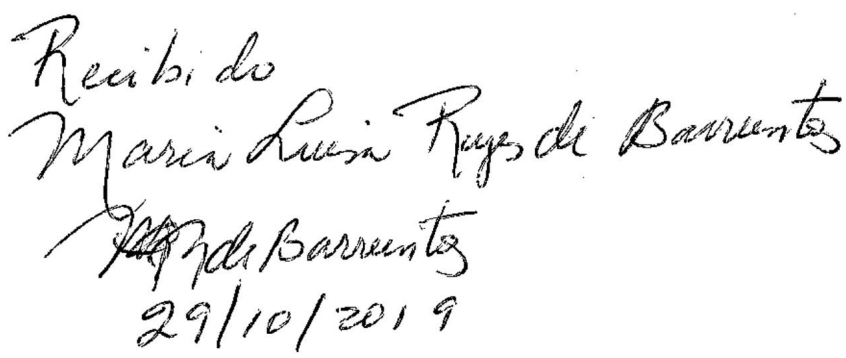 Recibido
Maria Luisa Reyes de Barrientos
de Barrientos
29/10/2019